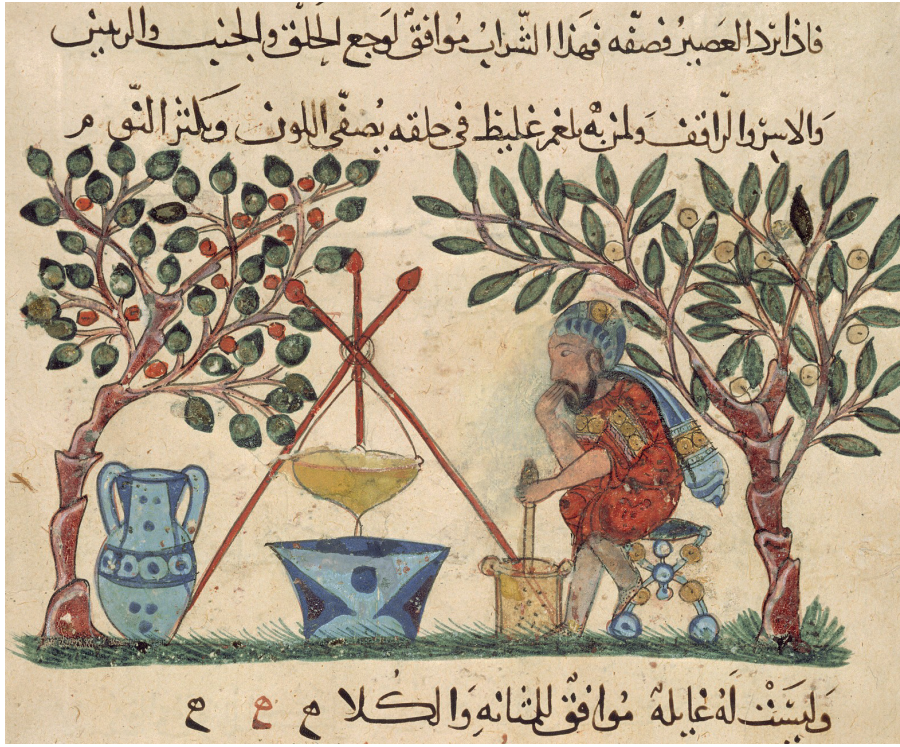 فاذا برد العصير فصفه فهذا الشراب موافق لوجع الحلق والجنب والريتين
والاسر والراقف ولمن به بلغم غليظ في حلقه يصفي اللون ويكثر النوم
وليست له غايله موافق للمثانه والكلا